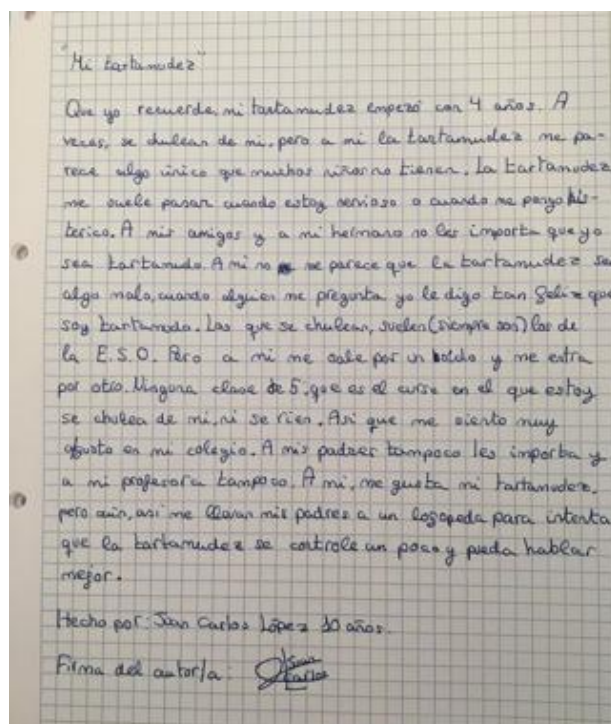 "Mi tartamudez"
Que yo recuerde, mi tartamudez empezó con 4 años. A
veces, se chulean de mi, pero a mi la tartamudez me pa-
rece algo único que muchos niños no tienen. La tartamudez
me suele pasar cuando estoy nervioso o cuando me pongo his-
terico. A mis amigos y a mi hermano no les importa que yo
sea tartamudo. A mi no me parece que la tartamudez sea
algo malo, cuando alguien me pregunta yo le digo tan feliz que
soy tartamudo. Los que se chulean, suelen (siempre son) los de
la E.S.O. Pero a mi me sale por un oido y me entra
por otro. Ninguna clase de 5º, que es el curso en el que estoy
se chulea de mi, ni se rien. Asi que me siento muy
agusto en mi colegio. A mis padres tampoco les importa y
a mi profesora tampoco. A mi, me gusta mi tartamudez,
pero aún, asi me llevan mis padres a un logopeda para intenta
que la tartamudez se controle un poco y pueda hablar
mejor.
Hecho por: Juan Carlos López 10 años.
Firma del autor/a: Juan
Carlos